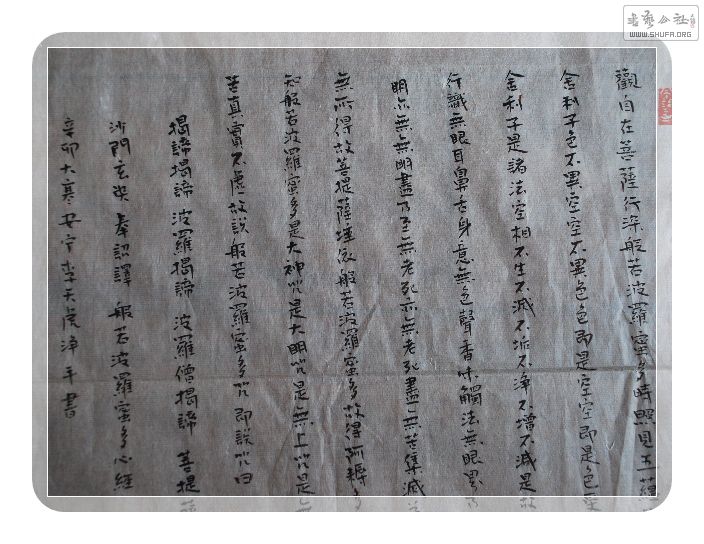 觀自在菩薩行深般若波羅蜜多時照見五蘊
舍利子色不異空空不異色色即是空空即是色受
舍利子是諸法空相不生不滅不垢不淨不增不減是故
行識無眼耳鼻舌身意無色聲香味觸法無眼界乃
明亦無無明盡乃至無老死亦無老死盡無苦集滅
無所得故菩提薩埵依般若波羅蜜多故得阿耨多
知般若波羅蜜多是大神咒是大明咒是無上咒是
苦真實不虛故說般若波羅蜜多咒即說咒曰
揭諦揭諦 波羅揭諦 波羅僧揭諦 菩提
沙門玄奘奉詔譯 般若波羅蜜多心經
辛卯大寒 李天虎淨手書
書藝公社
WWW.SHUFA.ORG